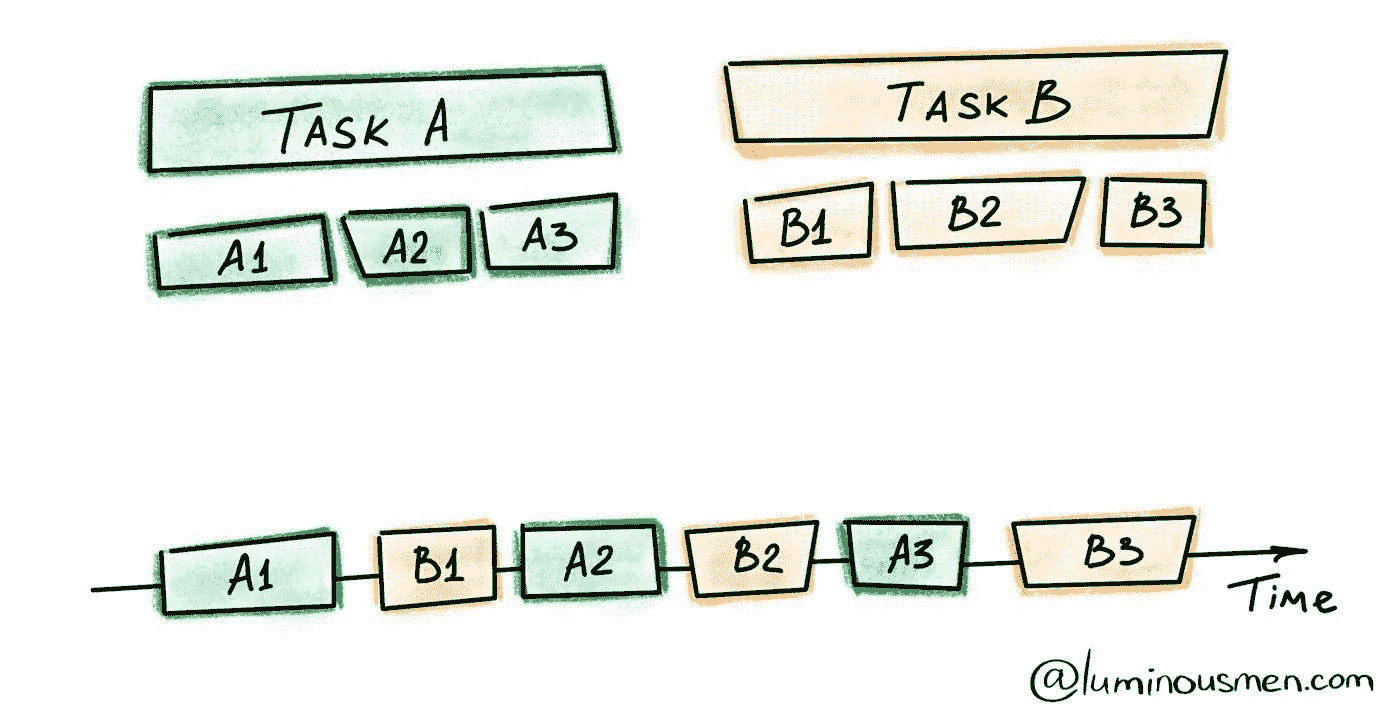 TASK A
TASK B
A1 A2 A3
B1 B2 B3
A1 B1 A2 B2 A3 B3
Time
@luminousmen.com